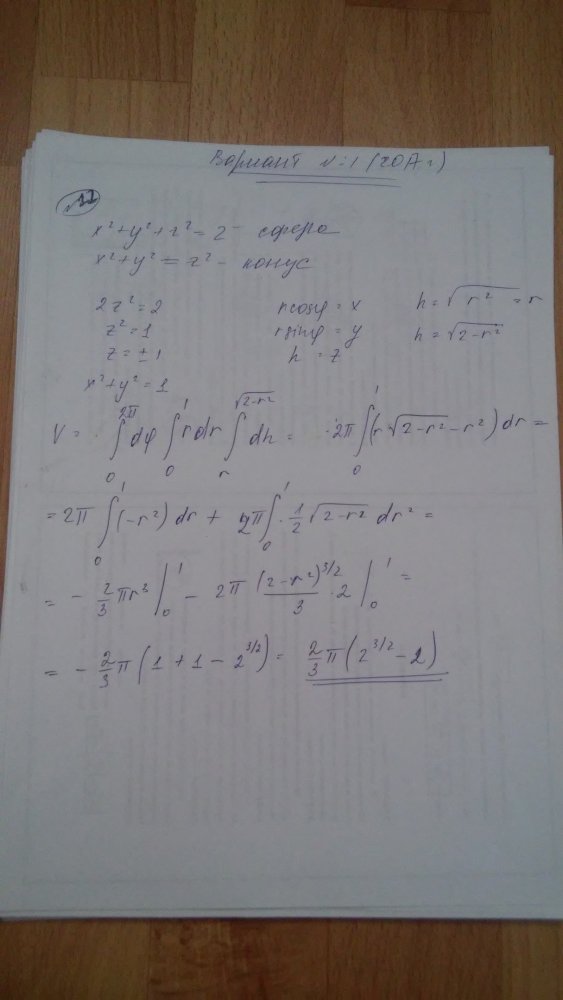 Вариант №1 (20 )
№12
x² + y² + z² = 2 - сфера
x² + y² = z² - конус
2z² = 2 r cosφ = x h = √r² = r
z² = 1 r sinφ = y h = √(2-r²)
z = ±1 h = z
x² + y² = 1
V = ∫₀^{2π} dφ ∫₀^1 r dr ∫_r^{√(2-r²)} dh = 2π ∫₀^1 (r√(2-r²) - r²) dr =
= 2π ∫₀^1 (-r²) dr + 2π ∫₀^1 · 1/2 √(2-r²) dr² =
= - 2/3 πr³ |₀^1 - 2π (2-r²)^{3/2}/3 · 2 |₀^1 =
= - 2/3 π (1 + 1 - 2^{3/2}) = 2/3 π (2^{3/2} - 2)